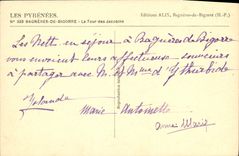 LES PYRÉNÉES
N° 323 BAGNÈRES-DE-BIGORRE - La Tour des Jacobins
Editions ALIX, Bagnères-de-Bigorre (H.-P.)
Les Nells en séjour à Bagnères de Bigorre
vous envoient leurs affectueux souvenirs
à partager avec M. et Mme d'
Yolande
Marie Antoinette